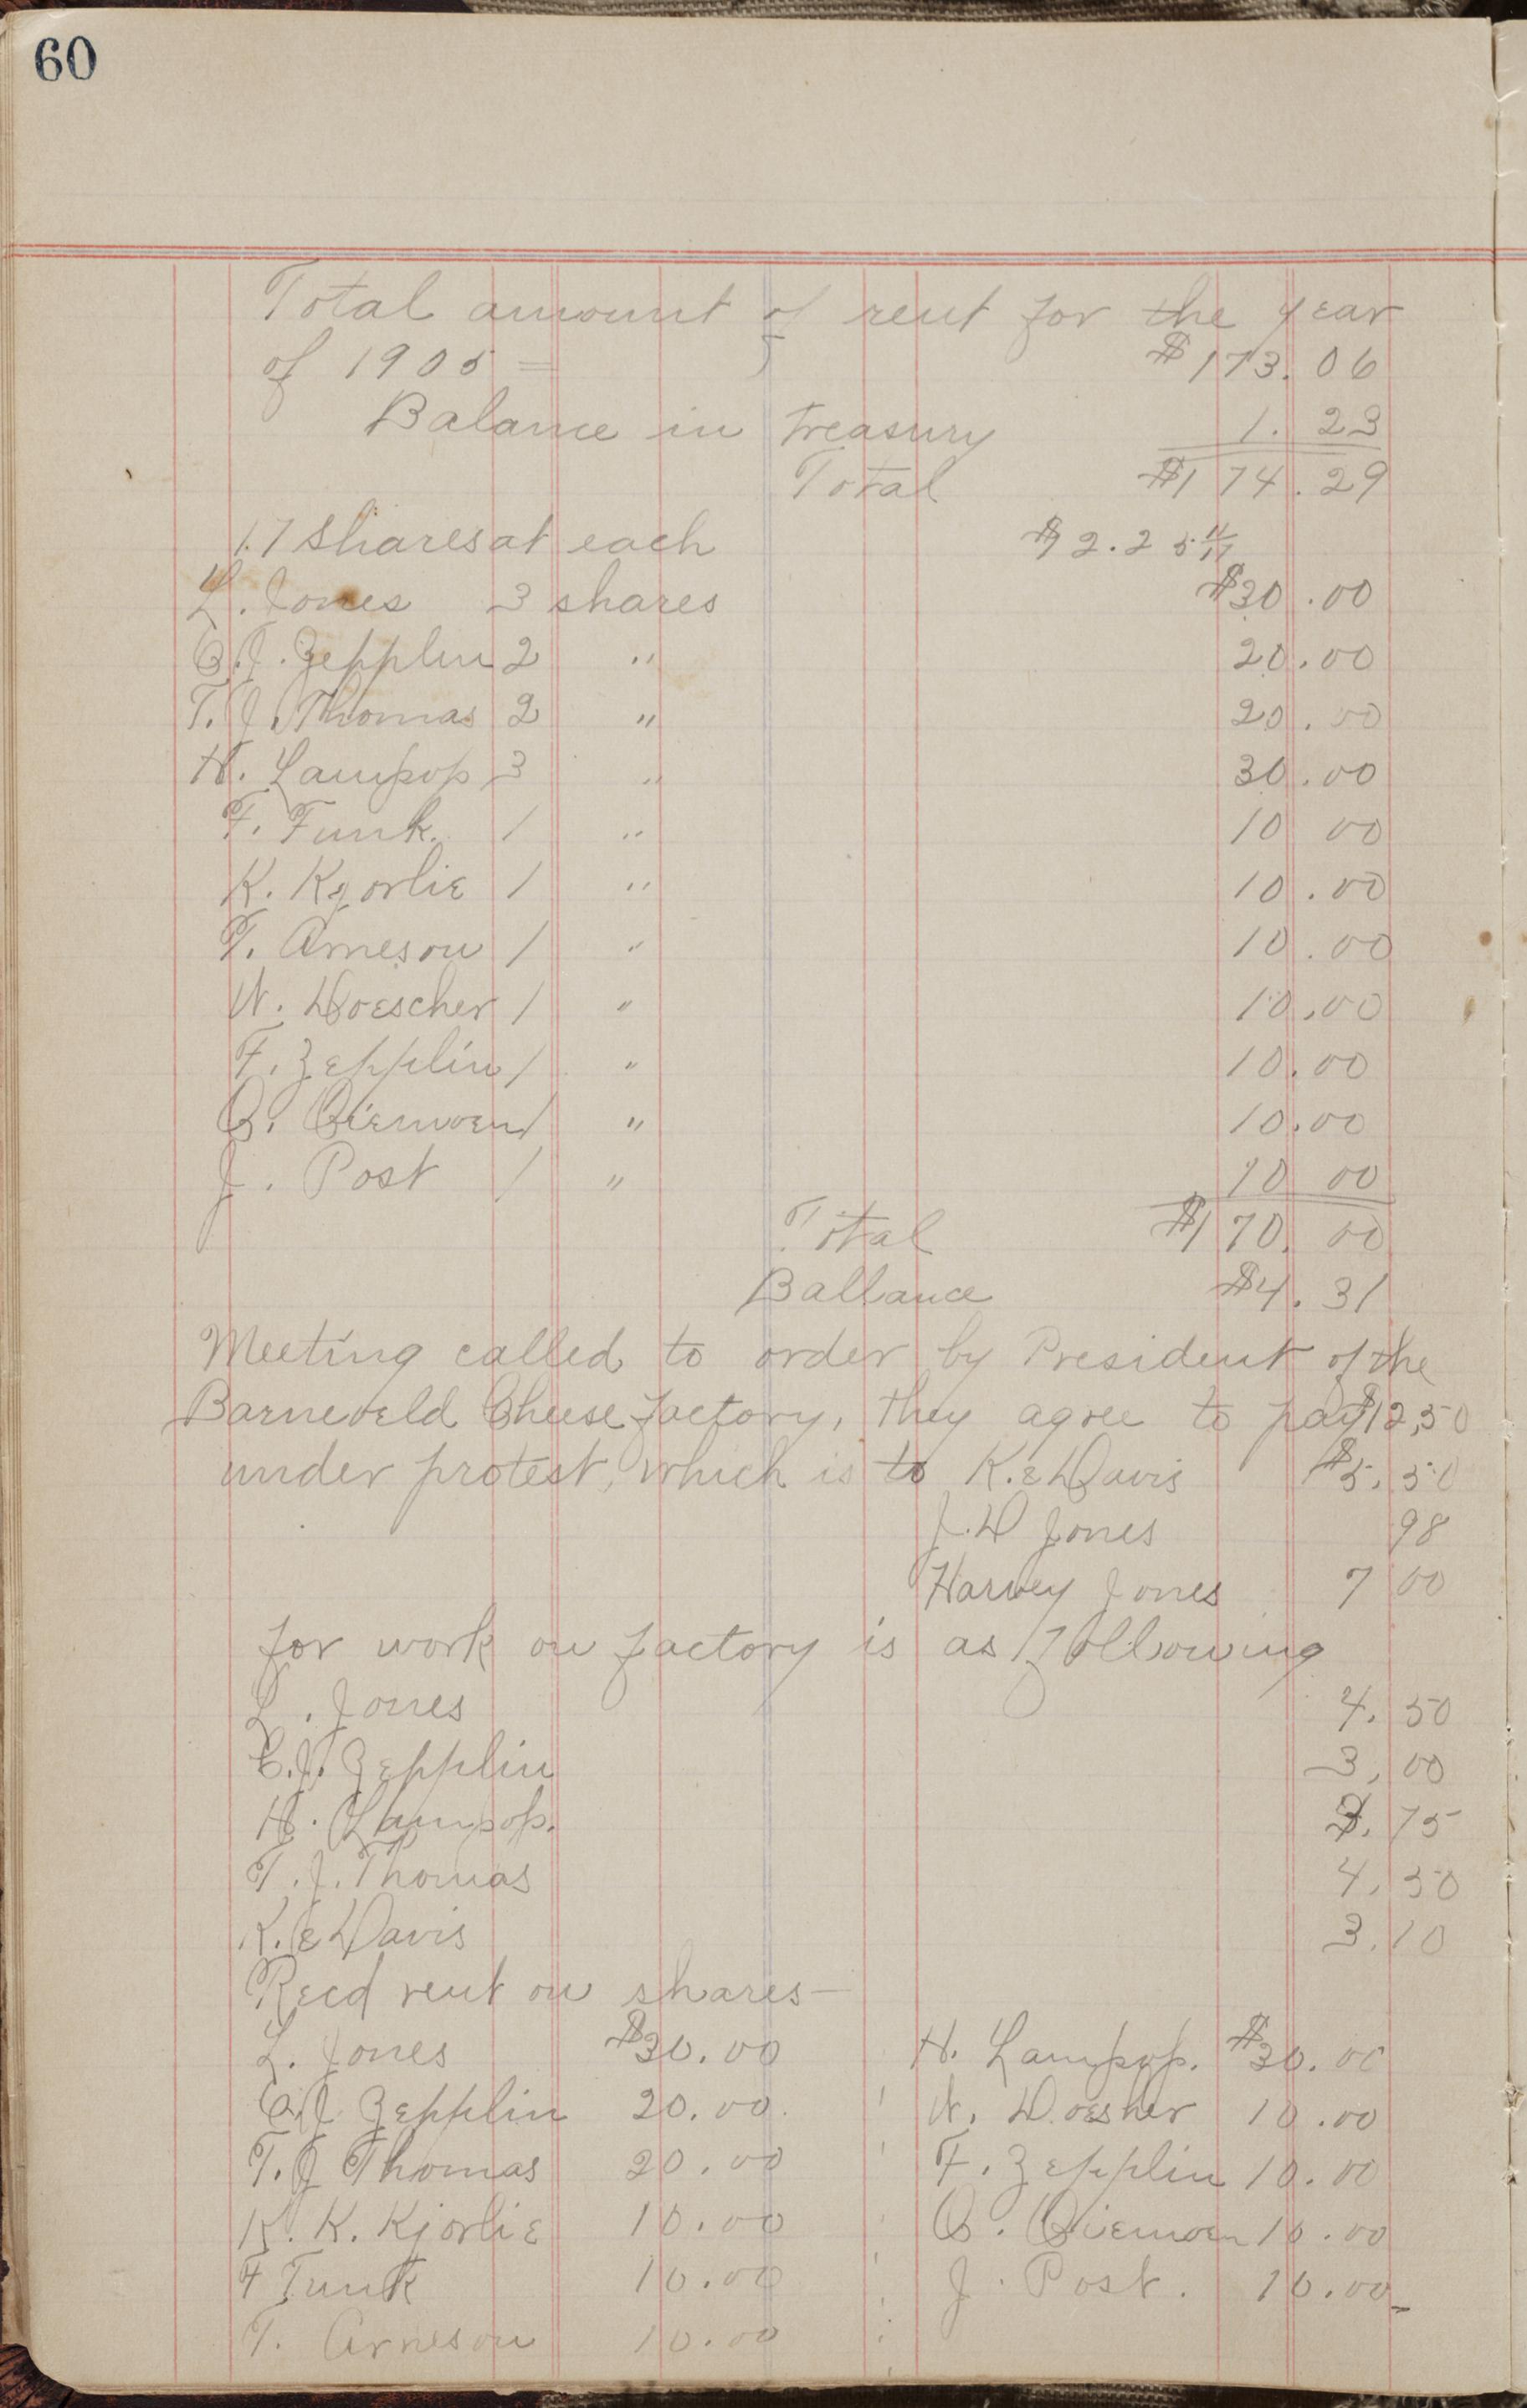 60
Total amount of rent for the year
of 1905 = $173.06
Balance in treasury 1.23
Total $174.29
17 shares at each $
L. Jones 3 shares $30.00
C.J. Zepplin 2 " 20.00
T. J. Thomas 2 " 20.00
H. Lampop 3 " 30.00
F. Funk. 1 " 10 00
K. Kjorlie 1 " 10.00
T. Arneson 1 " 10.00
W. Doescher 1 " 10.00
F. Zepplin 1 " 10.00
1 " 10.00
J. Post 1 " 10 00
Total $170.00
Ballance $4.31
Meeting called to order by President of the
Barneveld Cheese factory, they agree to pay $12,50
under protest, which is to K. E Davis $5.50
J. D Jones 98
Harvey Jones 7 00
for work on factory is as following
L. Jones 4.50
C.J. Zepplin 3,00
H. Lampop. .75
T. J. Thomas 4.50
K. E Davis 3.10
Recd rent on shares—
L. Jones $30.00 H. Lampop. $30.00
C.J Zepplin 20.00. W. Doesher 10.00
T. J Thomas 20.00 F. Zepplin 10.00
K. K. Kjorlie 10.00 10.00
F Funk 10.00 J. Post. 10.00
T. Arneson 10.00